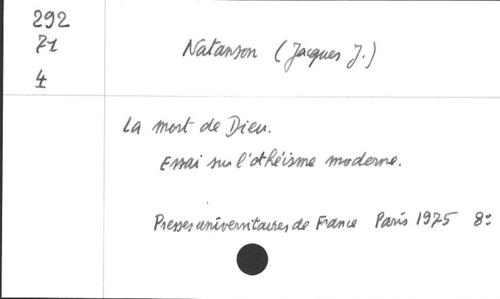 292
71
4
Natanson (Jacques J.)
La mort de Dieu.
Essai sur l'athéisme moderne.
Presses universitaires de France Paris 1975 8º